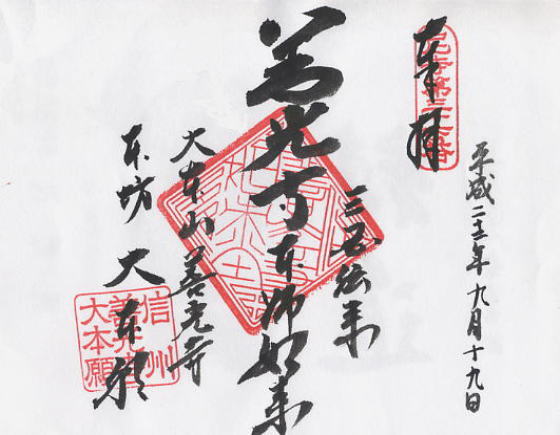 平成 年九月十九日
奉拝
三国伝来
善光寺本師如来
大本山善光寺
本坊 大本願
信州
善光寺
大本願